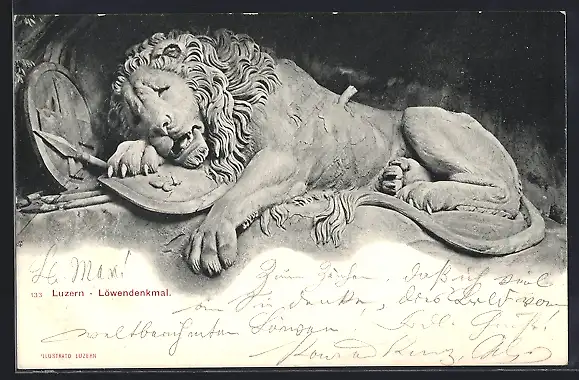 Lb. Max!
133 Luzern - Löwendenkmal.
Zum Zeichen, daß ich viel
an Dich denke, dies Bild vom
weltberühmten Löwen! Herzl. Grüße!
Konrad
ILLUSTRATO LUZERN